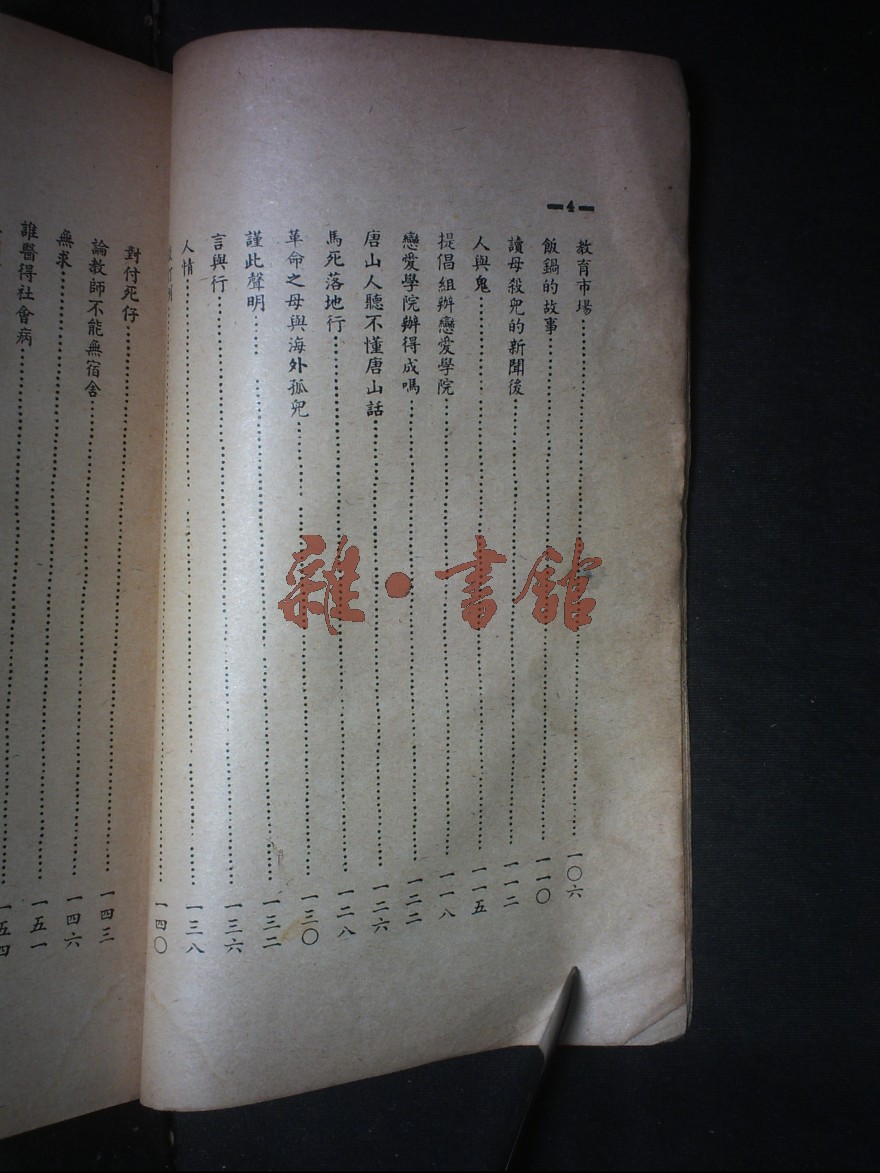 —4—
教育市場……一〇六
飯鍋的故事……一一〇
讀母殺兒的新聞後……一一二
人與鬼……一一五
提倡組辦戀愛學院……一一八
戀愛學院辦得成嗎……一二二
唐山人聽不懂唐山話……一二六
馬死落地行……一二八
革命之母與海外孤兒……一三〇
謹此聲明……一三二
言與行……一三六
人情……一三八
一四〇
對付死仔
論教師不能無宿舍……一四三
無求……一四六
誰醫得社會病……一五一
一五四
雜·書館